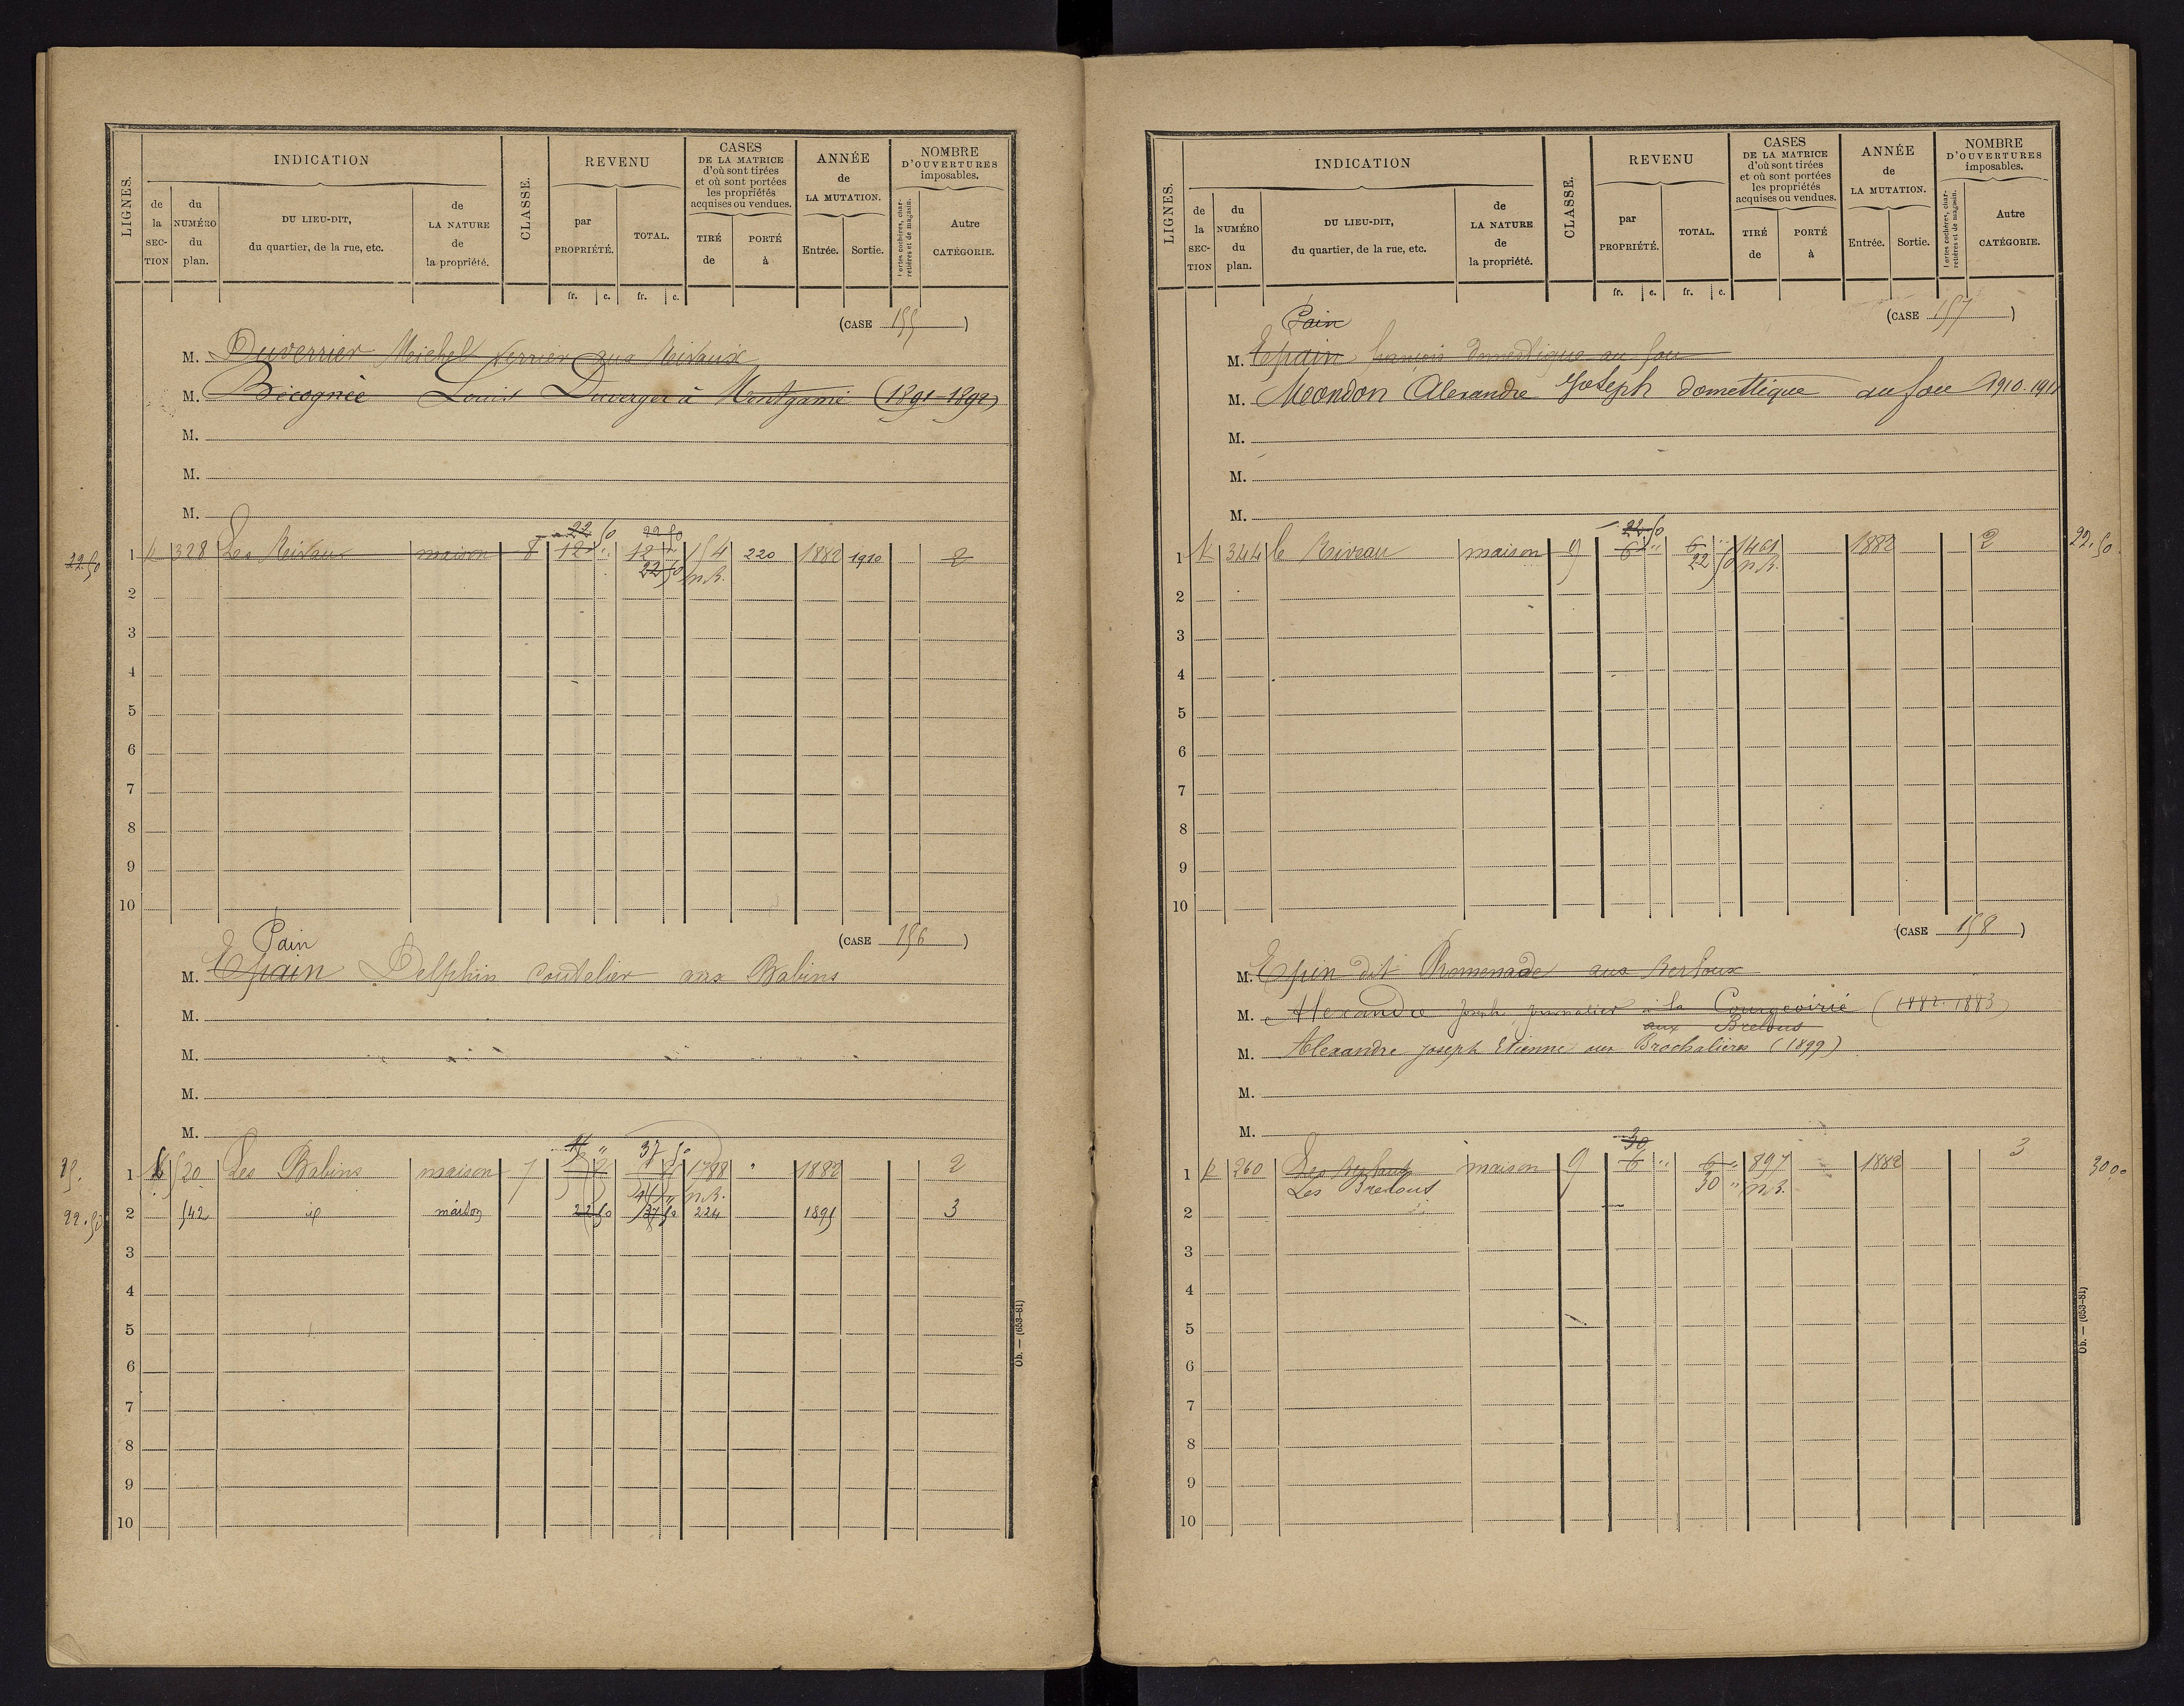 LIGNES.
INDICATION
de la SEC-TION
du NUMÉRO du plan.
DU LIEU-DIT, du quartier, de la rue, etc.
de LA NATURE de la propriété.
CLASSE.
REVENU
par PROPRIÉTÉ.
TOTAL.
fr. c. fr. c.
CASES DE LA MATRICE d'où sont tirées et où sont portées les propriétés acquises ou vendues.
TIRÉ de
PORTÉ à
ANNÉE de LA MUTATION.
Entrée. Sortie.
NOMBRE D'OUVERTURES imposables.
Portes cochères, charretières et de magasin.
Autre CATÉGORIE.
(CASE 155)
M. Duverrier Michel verrier aux Rivaux
M. Bécognée Louis Duverger à Montgamé (1891-1892)
M.
M.
M.
22 50 22 50
22.50
1 328 Les Rivaux maison 8 12 " 12 " 154 220 1882 1910 2
22 50 n.R.
2
3
4
5
6
7
8
9
10
(CASE 156)
Pain
M. Epain Delphin coutelier aux Babins
M.
M.
M.
M.
37 50
15.
1 520 Les Babins maison 7 1788 " 1882 2
n.R.
22.50
2 542 id maison 22 50 37 50 224 1895 3
3
4
5
6
7
8
9
10
Ob. — (653-81)
LIGNES.
INDICATION
de la SEC-TION
du NUMÉRO du plan.
DU LIEU-DIT, du quartier, de la rue, etc.
de LA NATURE de la propriété.
CLASSE.
REVENU
par PROPRIÉTÉ.
TOTAL.
fr. c. fr. c.
CASES DE LA MATRICE d'où sont tirées et où sont portées les propriétés acquises ou vendues.
TIRÉ de
PORTÉ à
ANNÉE de LA MUTATION.
Entrée. Sortie.
NOMBRE D'OUVERTURES imposables.
Portes cochères, charretières et de magasin.
Autre CATÉGORIE.
(CASE 157)
Pain
M. Epain françois domestique au fou
M. Mondon Alexandre Joseph domestique au fou 1910.1911
M.
M.
M.
22.50
1 344 le Riveau maison 9 6 " 6 " 1461 1882 2 22.50
22 50 n.R.
2
3
4
5
6
7
8
9
10
(CASE 158)
M. Epin dit Promenade aux Berloux
M. Alexandre Joseph journalier à la Courgeoirie (1882-1883)
aux Brelous
M. Alexandre joseph Etienne aux Brochalières (1899)
M.
M.
30
1 260 Les Berloux maison 9 6 " 6 " 897 1882 3 30 00
Les Brelous 30 " n.R.
2
3
4
5
6
7
8
9
10
Ob. — (653-81)